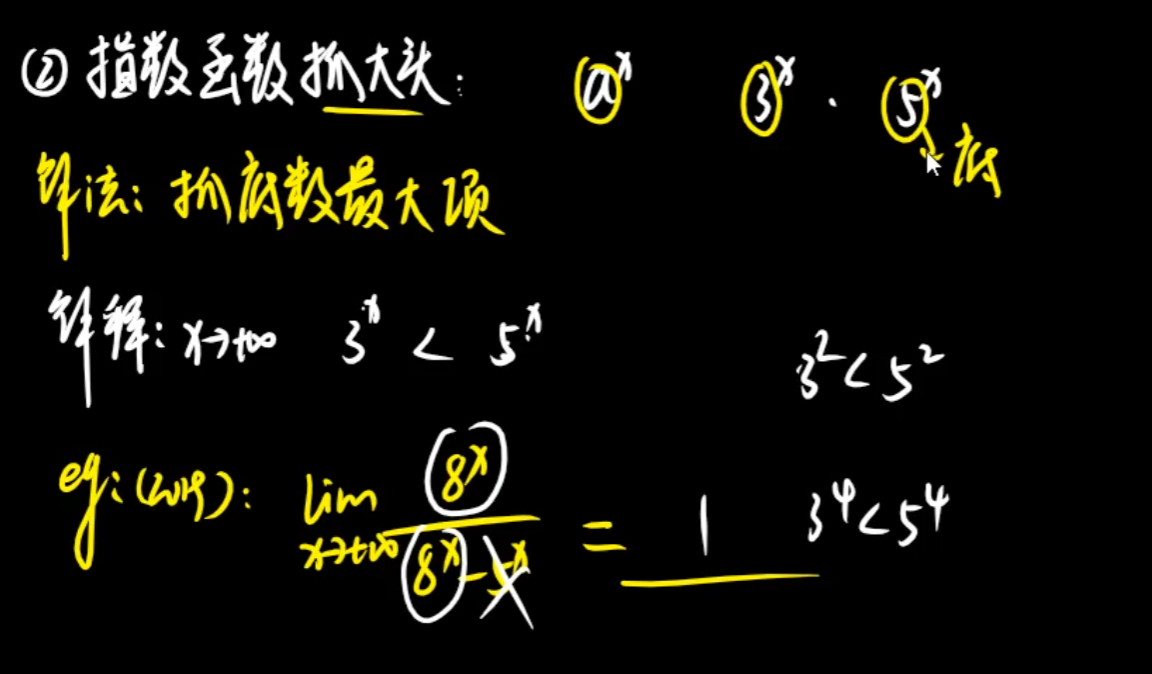 ② 指数函数抓大头: aˣ 3ˣ · 5ˣ
底
解法: 抓底数最大项
解释: x→+∞ 3ˣ < 5ˣ 3² < 5²
eg: (2019): lim x→+∞ 8ˣ / (8ˣ - 5ˣ) = 1 3⁴ < 5⁴